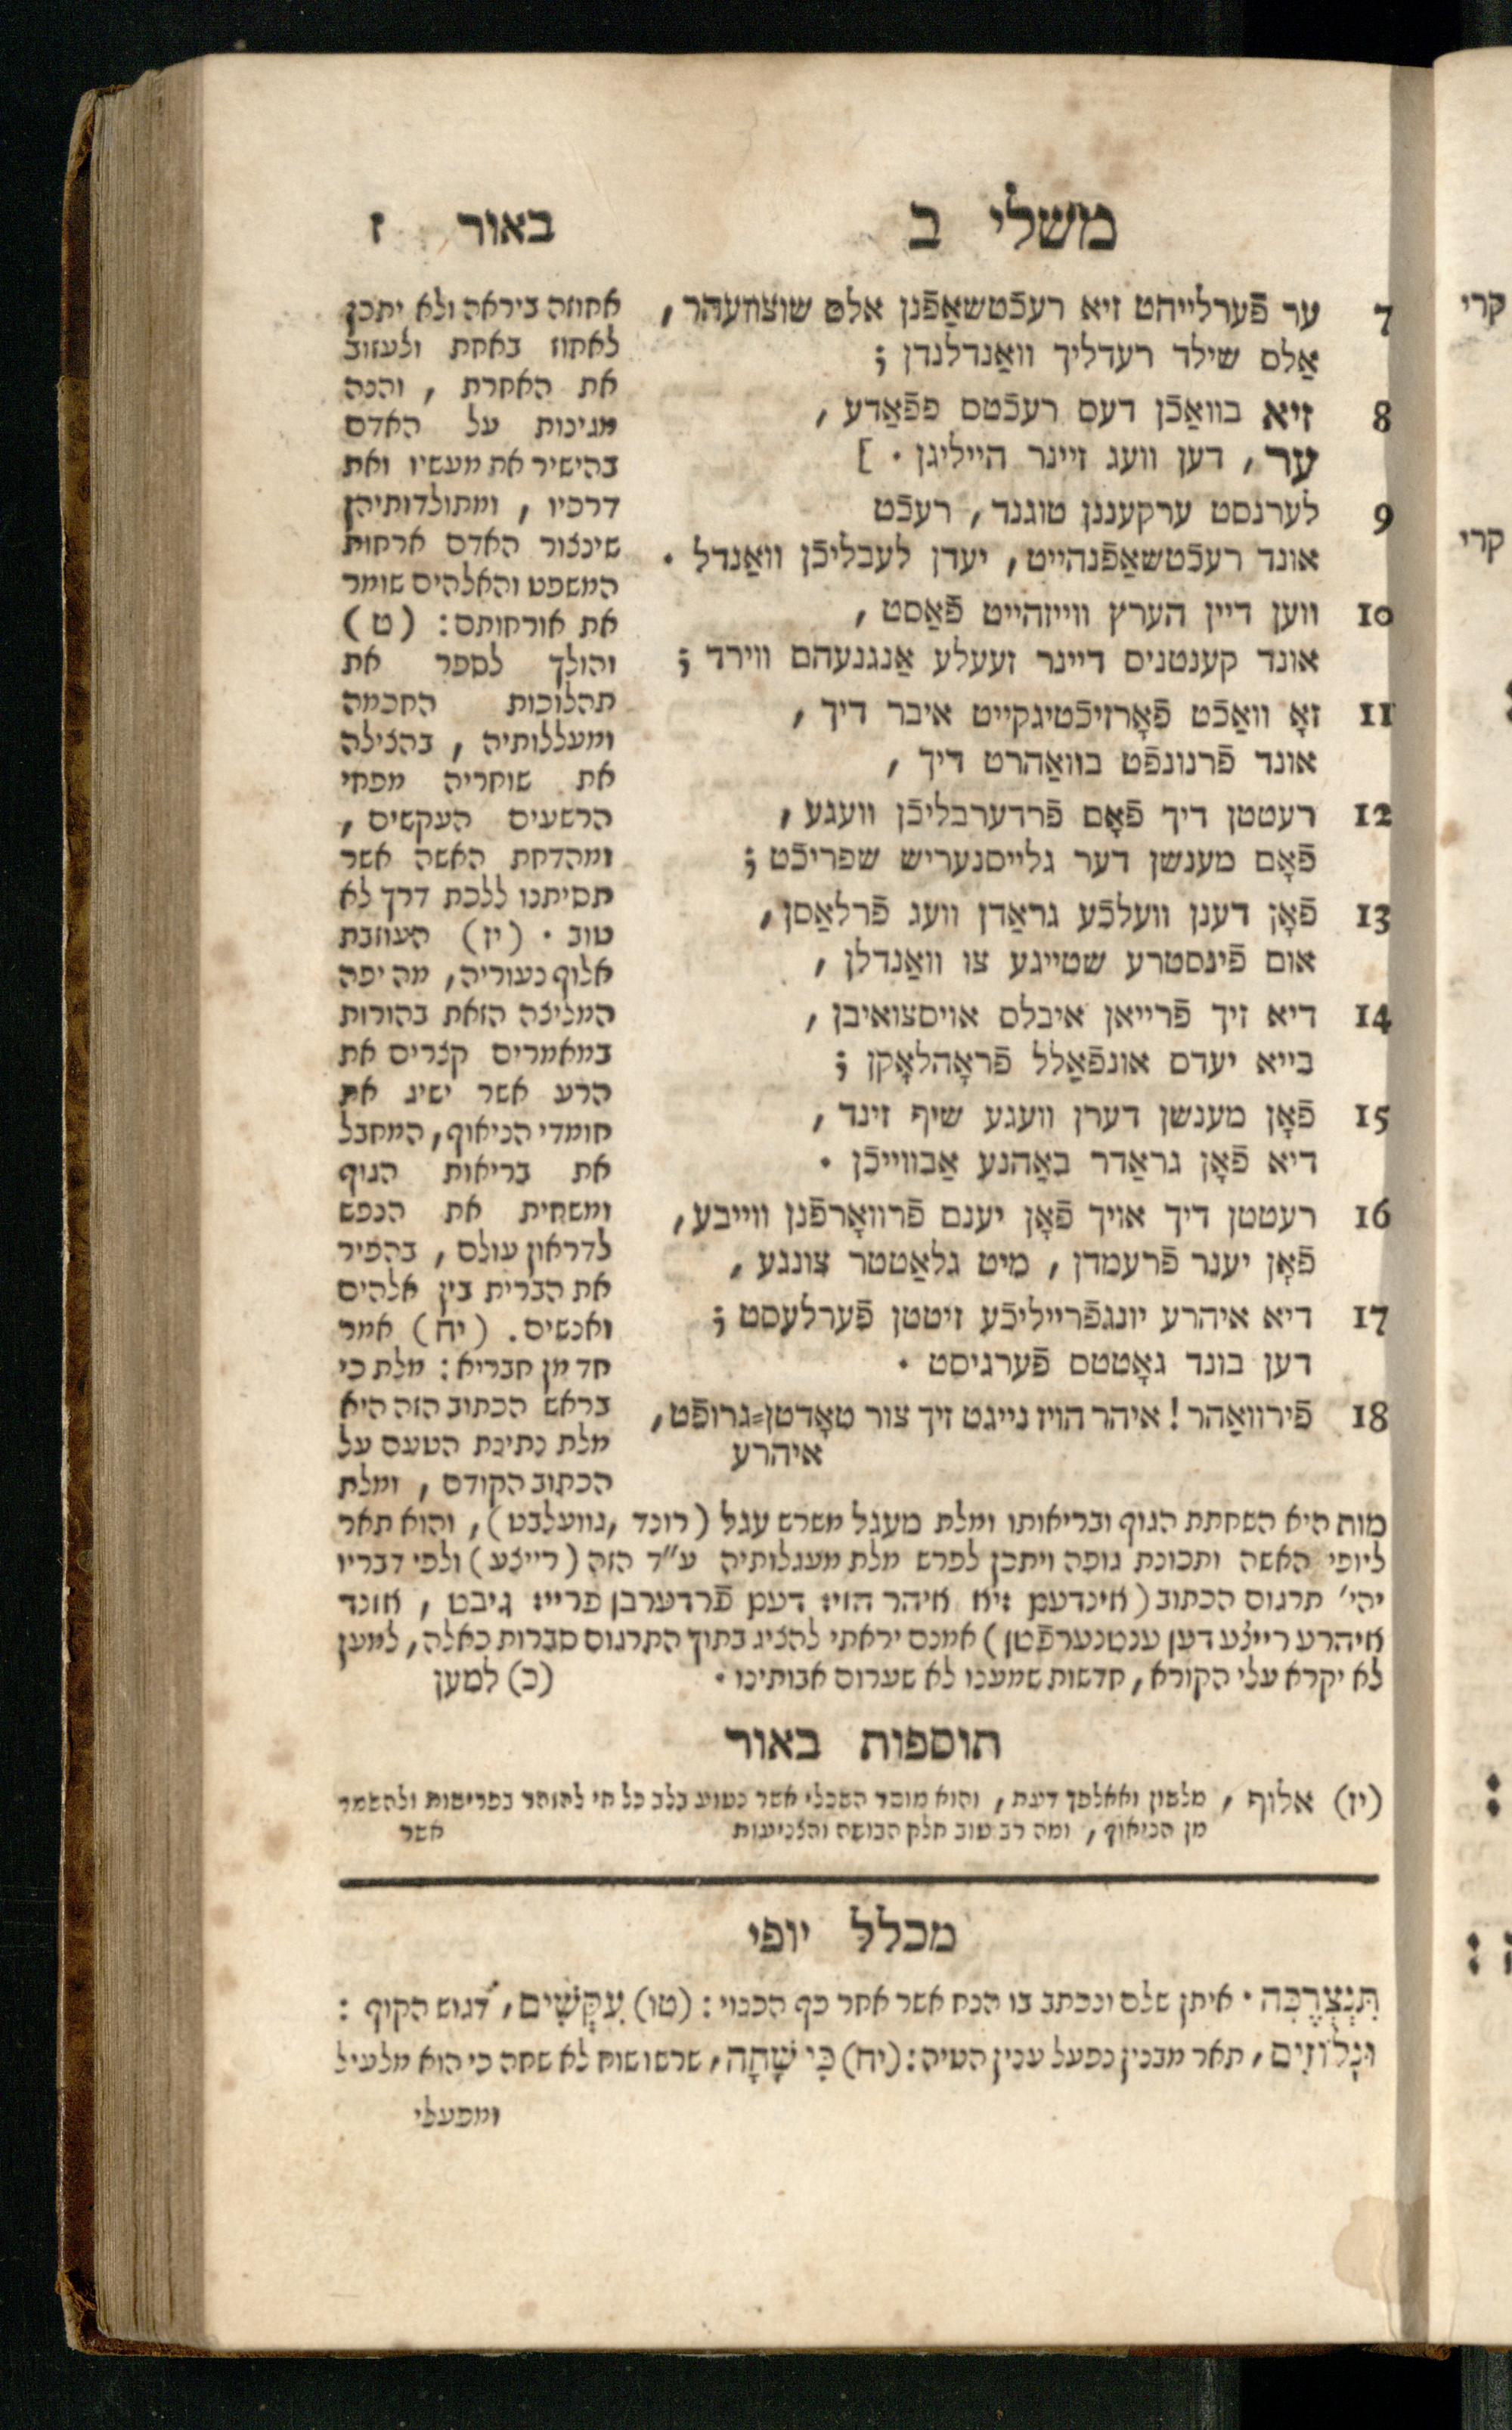 משלי ב
באור ז
7 ער פֿערלייהט זיא רעכֿטשאַפֿנן אלס שוצוועהר,
אַלס שילד רעדליך וואַנדלנדן;
8 זיא בוואַכֿן דעס רעכֿטס פפֿאַדע,
ער, דען וועג זיינר הייליגן. ]
9 לערנסט ערקעננן טוגנד, רעכֿט
אונד רעכֿטשאַפֿנהייט, יעדן לעבליכֿן וואַנדל.
10 ווען דיין הערץ ווייזהייט פֿאַסט,
אונד קענטניס דיינר זעעלע אַנגנעהם ווירד;
11 זאָ וואַכֿט פֿאָרזיכֿטיגקייט איבר דיך,
אונד פֿרנונפֿט בוואַהרט דיך,
12 רעטטן דיך פֿאָם פֿרדערבליכֿן וועגע,
פֿאָם מענשן דער גלייסנעריש שפריכֿט;
13 פֿאָן דענן וועלכֿע גראַדן וועג פֿרלאַסן,
אום פֿינסטרע שטייגע צו וואַנדלן,
14 דיא זיך פֿרייאן איבלס אויסצואיבן,
בייא יעדם אונפֿאַלל פֿראָהלאָקן;
15 פֿאָן מענשן דערן וועגע שיף זינד,
דיא פֿאָן גראַדר באַהנע אַבווייכֿן.
16 רעטטן דיך אויך פֿאָן יענם פֿרוואָרפֿנן ווייבע,
פֿאָן יענר פֿרעמדן, מיט גלאַטטר צונגע,
17 דיא איהרע יונגפֿרייליכֿע זיטטן פֿערלעסט;
דען בונד גאָטטס פֿערגיסט.
18 פֿירוואַהר! איהר הויז נייגט זיך צור טאָדטן=גרופֿט,
איהרע
אחוזה ביראה ולא יתכן
לאחוז באחת ולעזוב
את האחרת, והנה
מגינות על האדם
בהישיר את מעשיו ואת
דרכיו, ומתולדותיהן
שינצור האדם ארחות
המשפט והאלהים שומר
את אורחותם: (ט)
והולך לספר את
תהלוכות החכמה
ומעללותיה, בהצילה
את שוחריה מפחי
הרשעים העקשים,
ומהדחת האשה אשר
תסיתנו ללכת דרך לא
טוב. (יז) העוזבת
אלוף נעוריה, מה יפה
המליצה הזאת בהורות
במאמרים קצרים את
הרע אשר ישיג את
חומדי הניאוף, המחבל
את בריאות הגוף
ומשחית את הנפש
לדראון עולם, בהפיר
את הברית בין אלהים
ואנשים. (יח) אמר
חד מן חבריא: מלת כי
בראש הכתוב הזה היא
מלת נתינת הטעם על
הכתוב הקודם, ומלת
מות היא השחתת הגוף ובריאותו ומלת מעגל משרש עגל (רונד, גוועלבט), והוא תאר
ליופי האשה ותכונת גופה ויתכן לפרש מלת מעגלותיה ע״ד הזה (רייצע) ולפי דבריו
יהי׳ תרגום הכתוב (אינדעם זיא איהר הויז דעם פֿרדערבן פרייז גיבט, אונד
איהרע רייצע דען ענטנערפֿטן) אמנם יראתי להציג בתוך התרגום סברות כאלה, למען
לא יקרא עלי הקורא, חדשות שמענו לא שערום אבותינו. (כ) למען
תוספות באור
(יז) אלוף, מלשון ואאלפך דעת, והוא מוסד השכלי אשר נטוע בלב כל חי להזהר בפרישות ולהשמר
מן הניאוף, ומה רב טוב חלק הבושה והצניעות אשר
מכלל יופי
תִּנְצְרֶכָּה. איתן שלם ונכתב בו הנח אשר אחר כף הכנוי: (טו) עִקְּשִׁים, דגוש הקוף:
וּנְלוֹזִים, תאר מבנין נפעל ענין הטיה: (יח) כִּי שָׁחָה, שרשו שוח לא שחה כי הוא מלעיל
ומפעלי
קרי
קרי